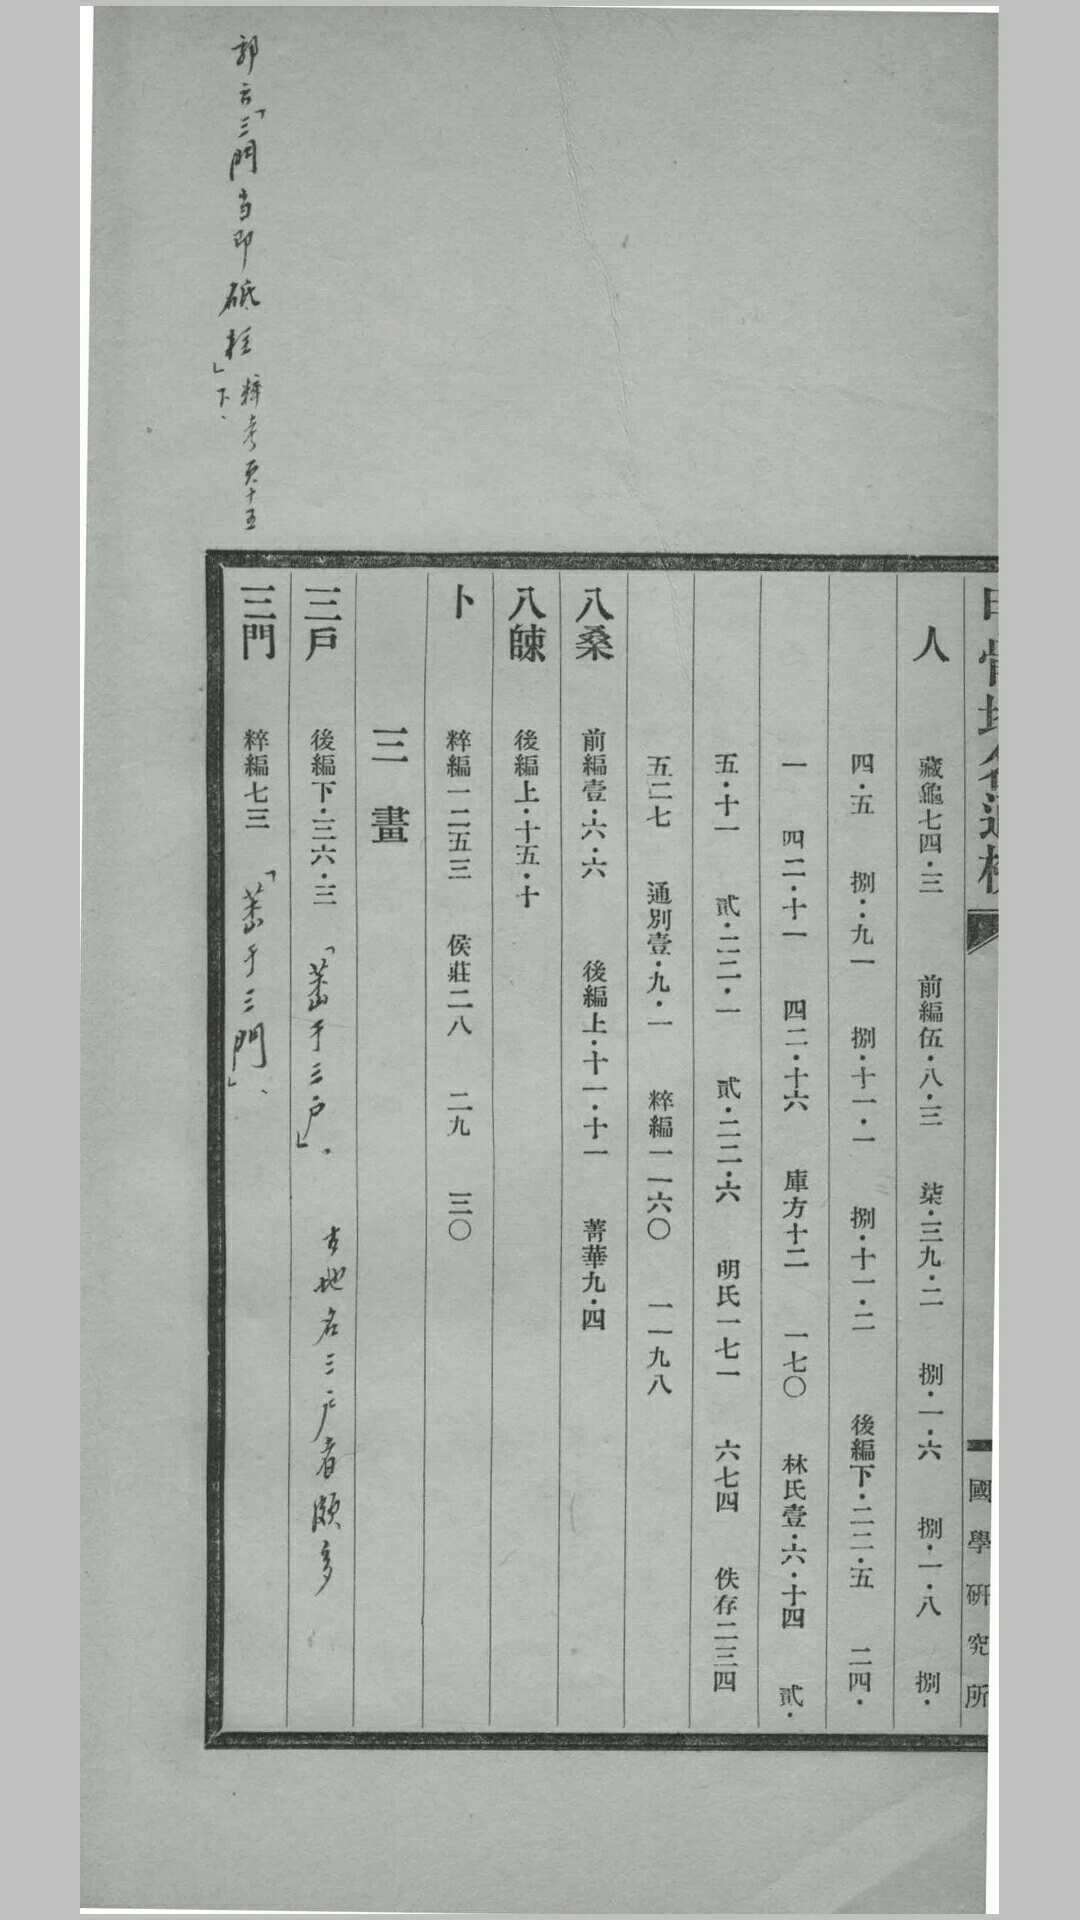 甲骨地名通檢
國學研究所
人　藏龜七四·三　前編伍·八·三　柒·三九·二　捌·一·六　捌·一·八　捌·
四·五　捌·九一　捌·十一·一　捌·十一·二　後編下·二二·五　二四·
一　四二·十一　四二·十六　庫方十二　一七〇　林氏壹·六·十四　貳·
五·十一　貳·二二·一　貳·二二·六　明氏一七一　六七四　佚存二三四
五二七　通別壹·九·一　粹編一一六〇　一一九八
八桑　前編壹·六·六　後編上·十一·十一　菁華九·四
八餗　後編上·十五·十
卜　粹編一二五三　侯莊二八　二九　三〇
三畫
三戶　後編下·三六·三　「于三户」．古地名三户者頗多
三門　粹編七三　「于三門」、
郭云「三門当即砥柱」粹考頁十五下、